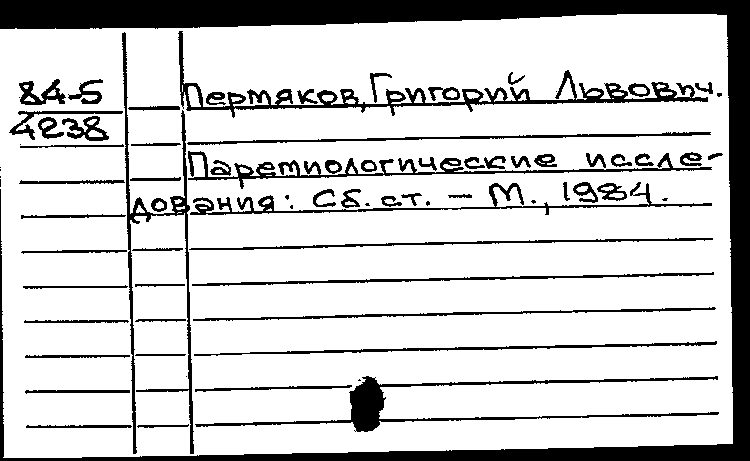 84-5 Пермяков, Григорий Львович.
4238
Паремиологические иссле-
дования: Сб. ст. — М., 1984.